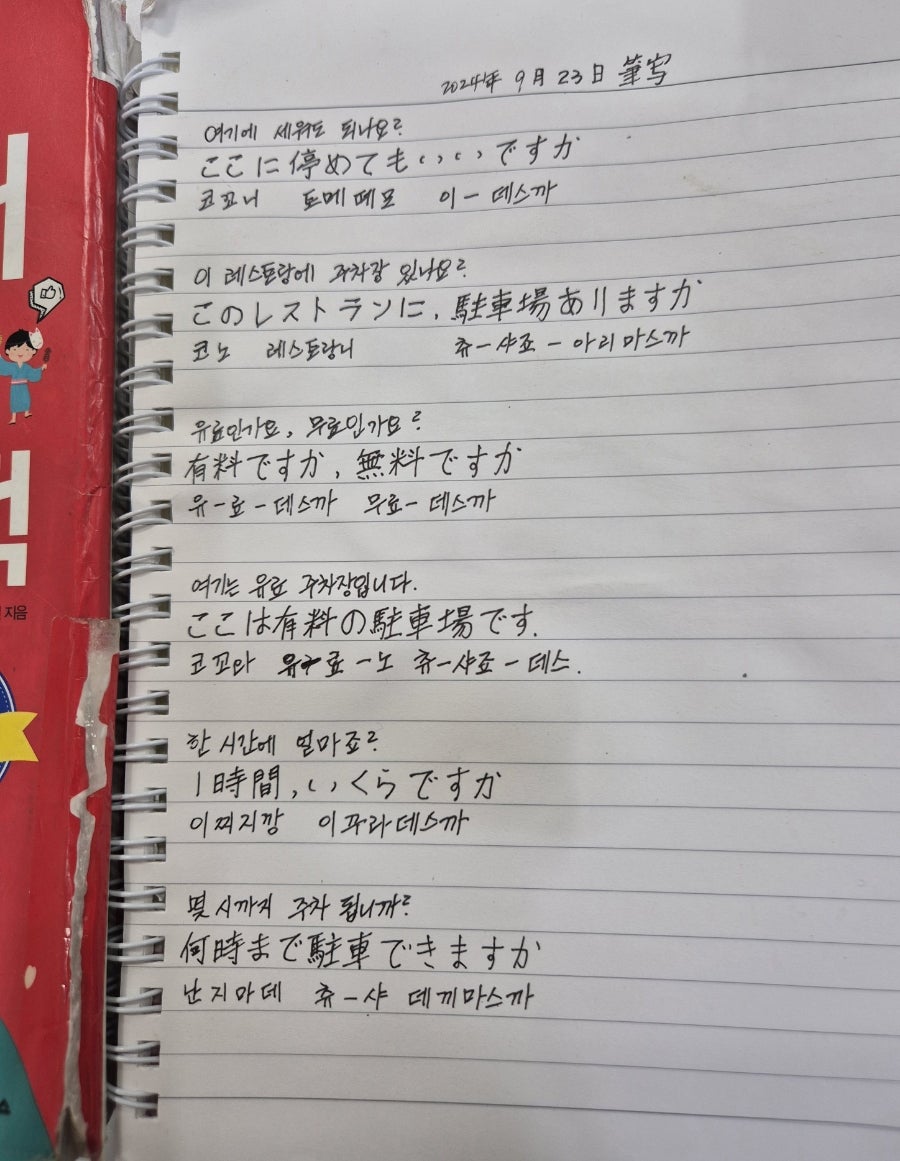 2024年 9月 23日 筆写
여기에 세워도 되나요?
ここに停めてもいいですか
코꼬니 토메떼모 이-데스까
이 레스토랑에 주차장 있나요?
このレストランに, 駐車場ありますか
코노 레스토랑니 츄-샤죠-아리마스까
유료인가요, 무료인가요?
有料ですか, 無料ですか
유-료-데스까 무료-데스까
여기는 유료 주차장입니다.
ここは有料の駐車場です.
코꼬와 유-료-노 츄-샤죠-데스.
한 시간에 얼마죠?
1時間, いくらですか
이찌지깡 이꾸라데스까
몇 시까지 주차 됩니까?
何時まで駐車できますか
난지마데 츄-샤 데끼마스까
지음